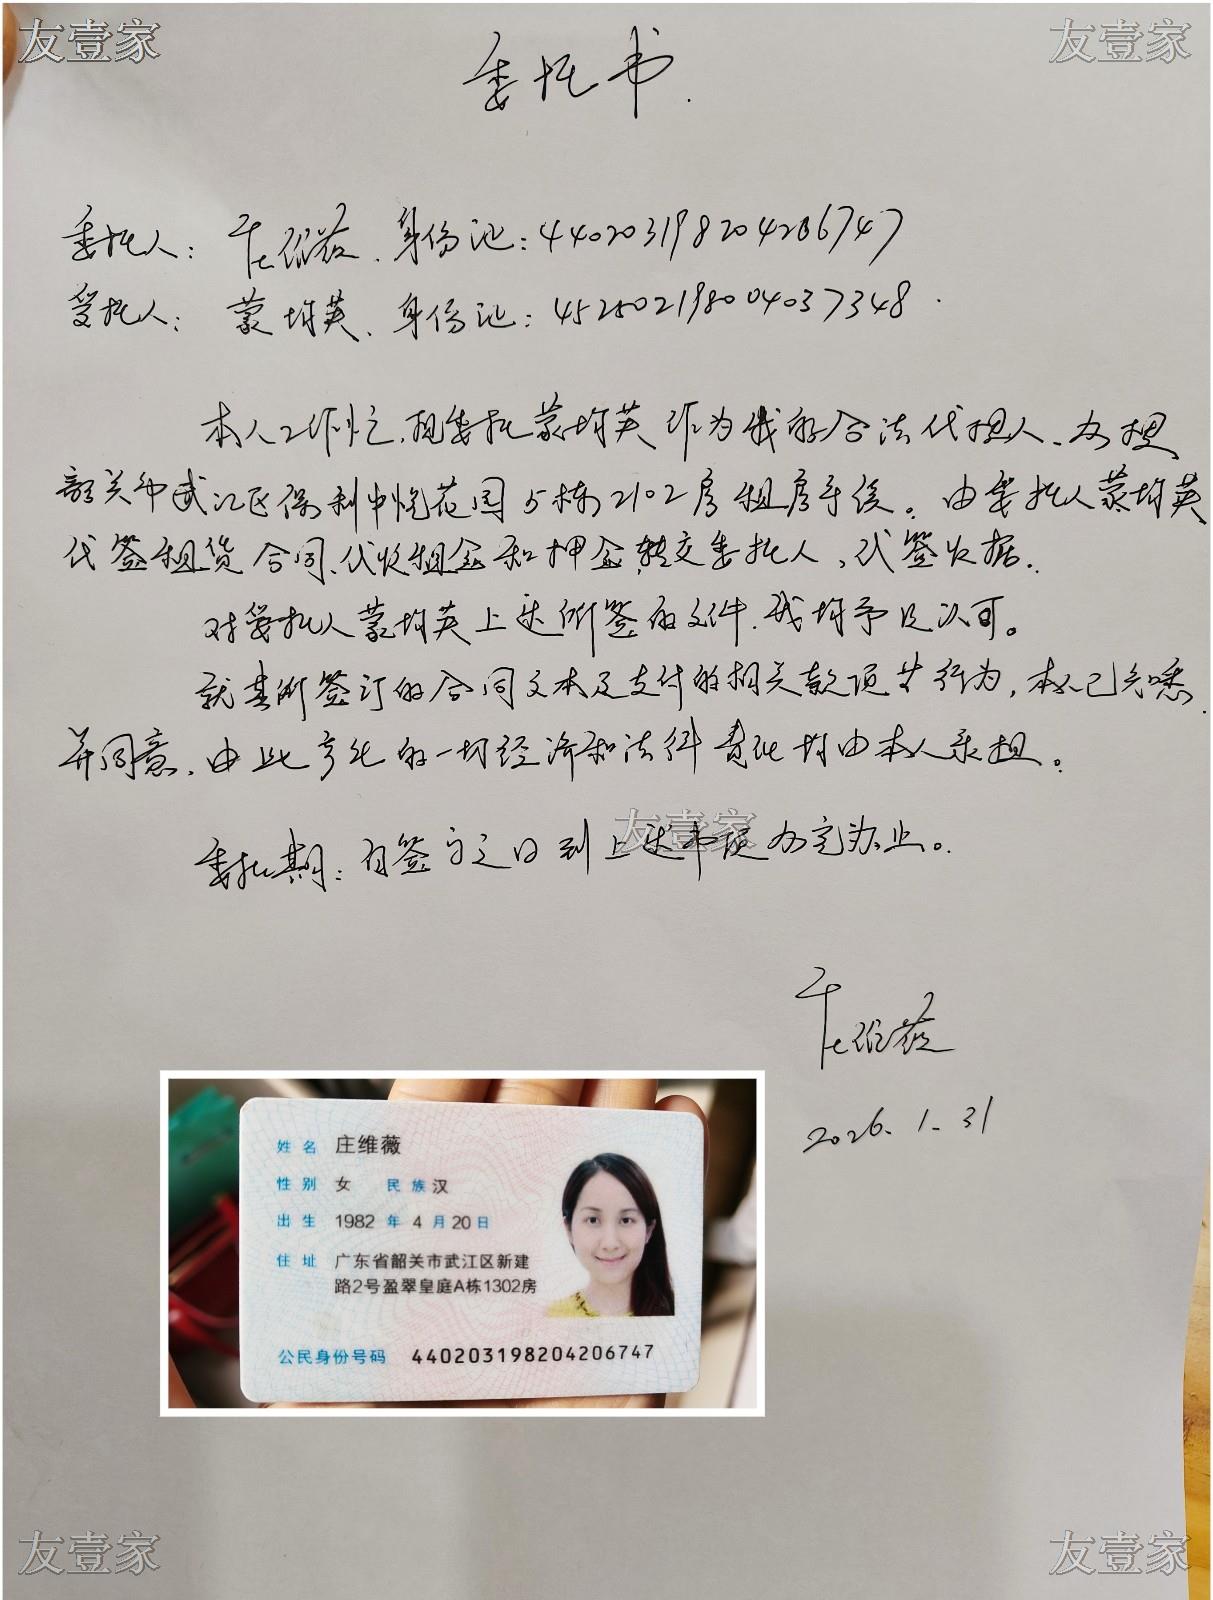 友壹家 友壹家
委托书.
委托人: 庄维薇、身份证: 440203198204206747
受托人: 蒙均英、身份证: 452502198004037348.
本人工作忙,现委托蒙均英作为我的合法代理人、办理
韶关市武江区保利中悦花园5栋2102房租房手续。由委托人蒙均英
代签租赁合同、代收租金和押金转交委托人,代签收据.
对委托人蒙均英上述所签的文件,我均予以认可。
就其所签订的合同文本及支付的相关款项等行为,本人已知悉
并同意,由此产生的一切经济和法律责任均由本人承担。
友壹家
委托期: 自签字之日到上述手续办完为止。
庄维薇
2026.1.31
姓名 庄维薇
性别 女 民族 汉
出生 1982 年 4 月 20 日
住址 广东省韶关市武江区新建
路2号盈翠皇庭A栋1302房
公民身份号码 440203198204206747
友壹家 友壹家